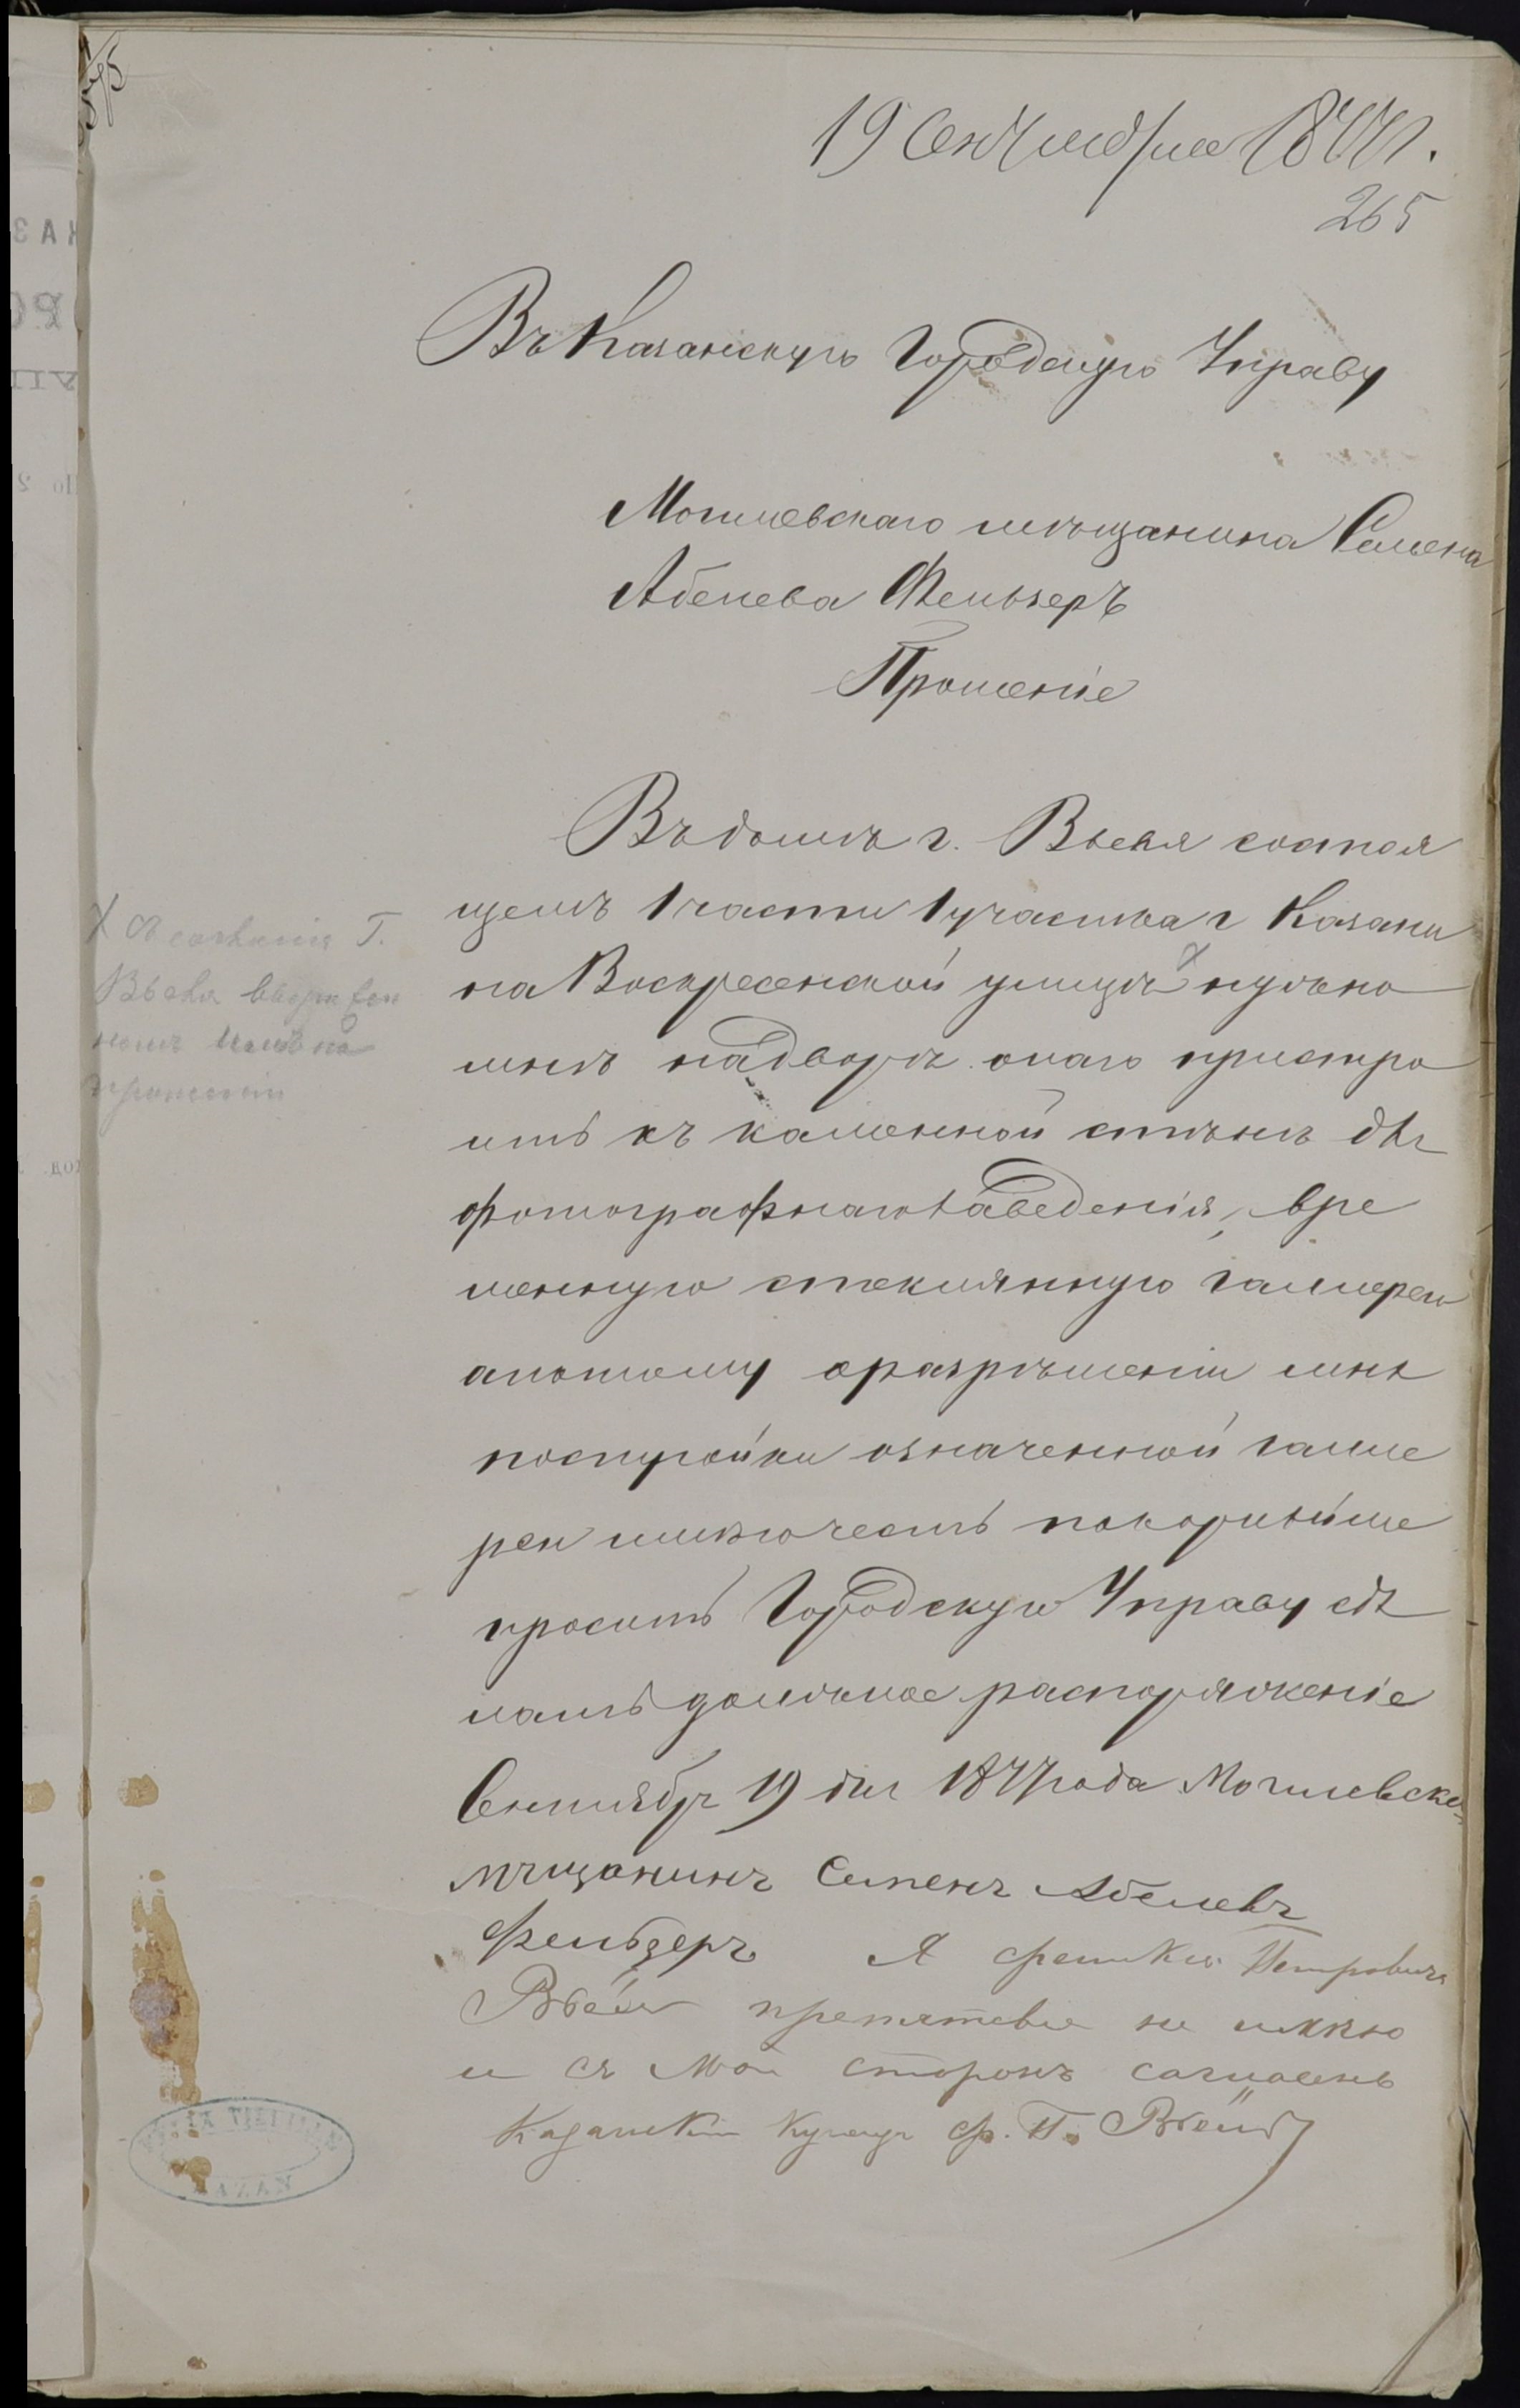 19 Сентября 1877 г.
265
Въ Казанскую Городскую Управу
Могилевскаго мѣщанина Семена
Абелева Фельзеръ
Прошеніе
Въ домѣ г. Вьеля состоя
щемъ 1 части 1 участка г Казани
на Воскресенской улицѣ х нужно
мнѣ надворѣ онаго пристро
ить къ каменной стѣнѣ для
фотографнаго заведенія, вре
менную стеклянную галлерею
апотому оразрѣшеніи мнѣ
постройки означенной галле
реи имѣю честь покорнѣйше
просить Городскую Управу сдѣ
лать должное распоряженіе
Сентября 19 дня 1877 года Могилевской
мѣщанинъ Семенъ Абелевъ
Фельзеръ Я Феликсъ Петровичъ
Вьейль препятствие не имѣю
и съ моей сторонъ согласенъ
Казанскій Купецъ Ф. П. Вьейль
Х О согласіи Г.
Вьеля
прошеніи
KAZAN